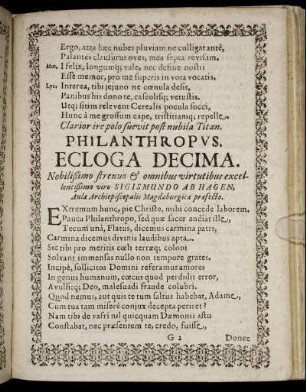 Ergo, atra hæc nubes pluviam ne colligat antè,
Palantes claudamus oves, mea fupca revisam.
Mæn. I felix, longumq́; vale, nec desine nostri
Esse memor, pro me superis in vota vocatis.
Lyc. Interea, tibi jejuno ne cœnula desit,
Panibus his dono te, caseolisq́; vetustis.
Utq́; sitim relevent Cerealis pocula succi,
Hunc à me grossum cape, tristitiamq́; repelle.
Clarior ire polo suevit post nubila Titan.
PHILANTHROPVS.
ECLOGA DECIMA.
Nobilissimo strenuo & omnibus virtutibus excel-
lentissimo viro SIGISMUNDO AB HAGEN,
Aulæ Archiepiscopalis Magdeburgicæ præfecto.
EXtremum hunc, pie Christo, mihi concede laborem.
Pauca Philanthropo, sed quæ facer audiat ille,
Tecum uni, Flatus, dicemus carmina patri,
Carmina dicemus divinis laudibus apta.
Sic tibi pro meritis cœli terræq́; coloni
Solvant immensas nullo non tempore grates.
Incipe, sollicitos Domini referamus amores
In genus humanum, cœcus quod perdidit error,
Avulsitq́; Deo, malesuadi fraude colubri.
Quod nemus, aut quis te tum saltus habebat, Adame,
Cum tua tam miserè conjux decepta periret?
Nam tibi de vastri nil quicquam Dæmonis astu
Constabat, nec præsentem te, credo, fuisse,
G 2 Donec